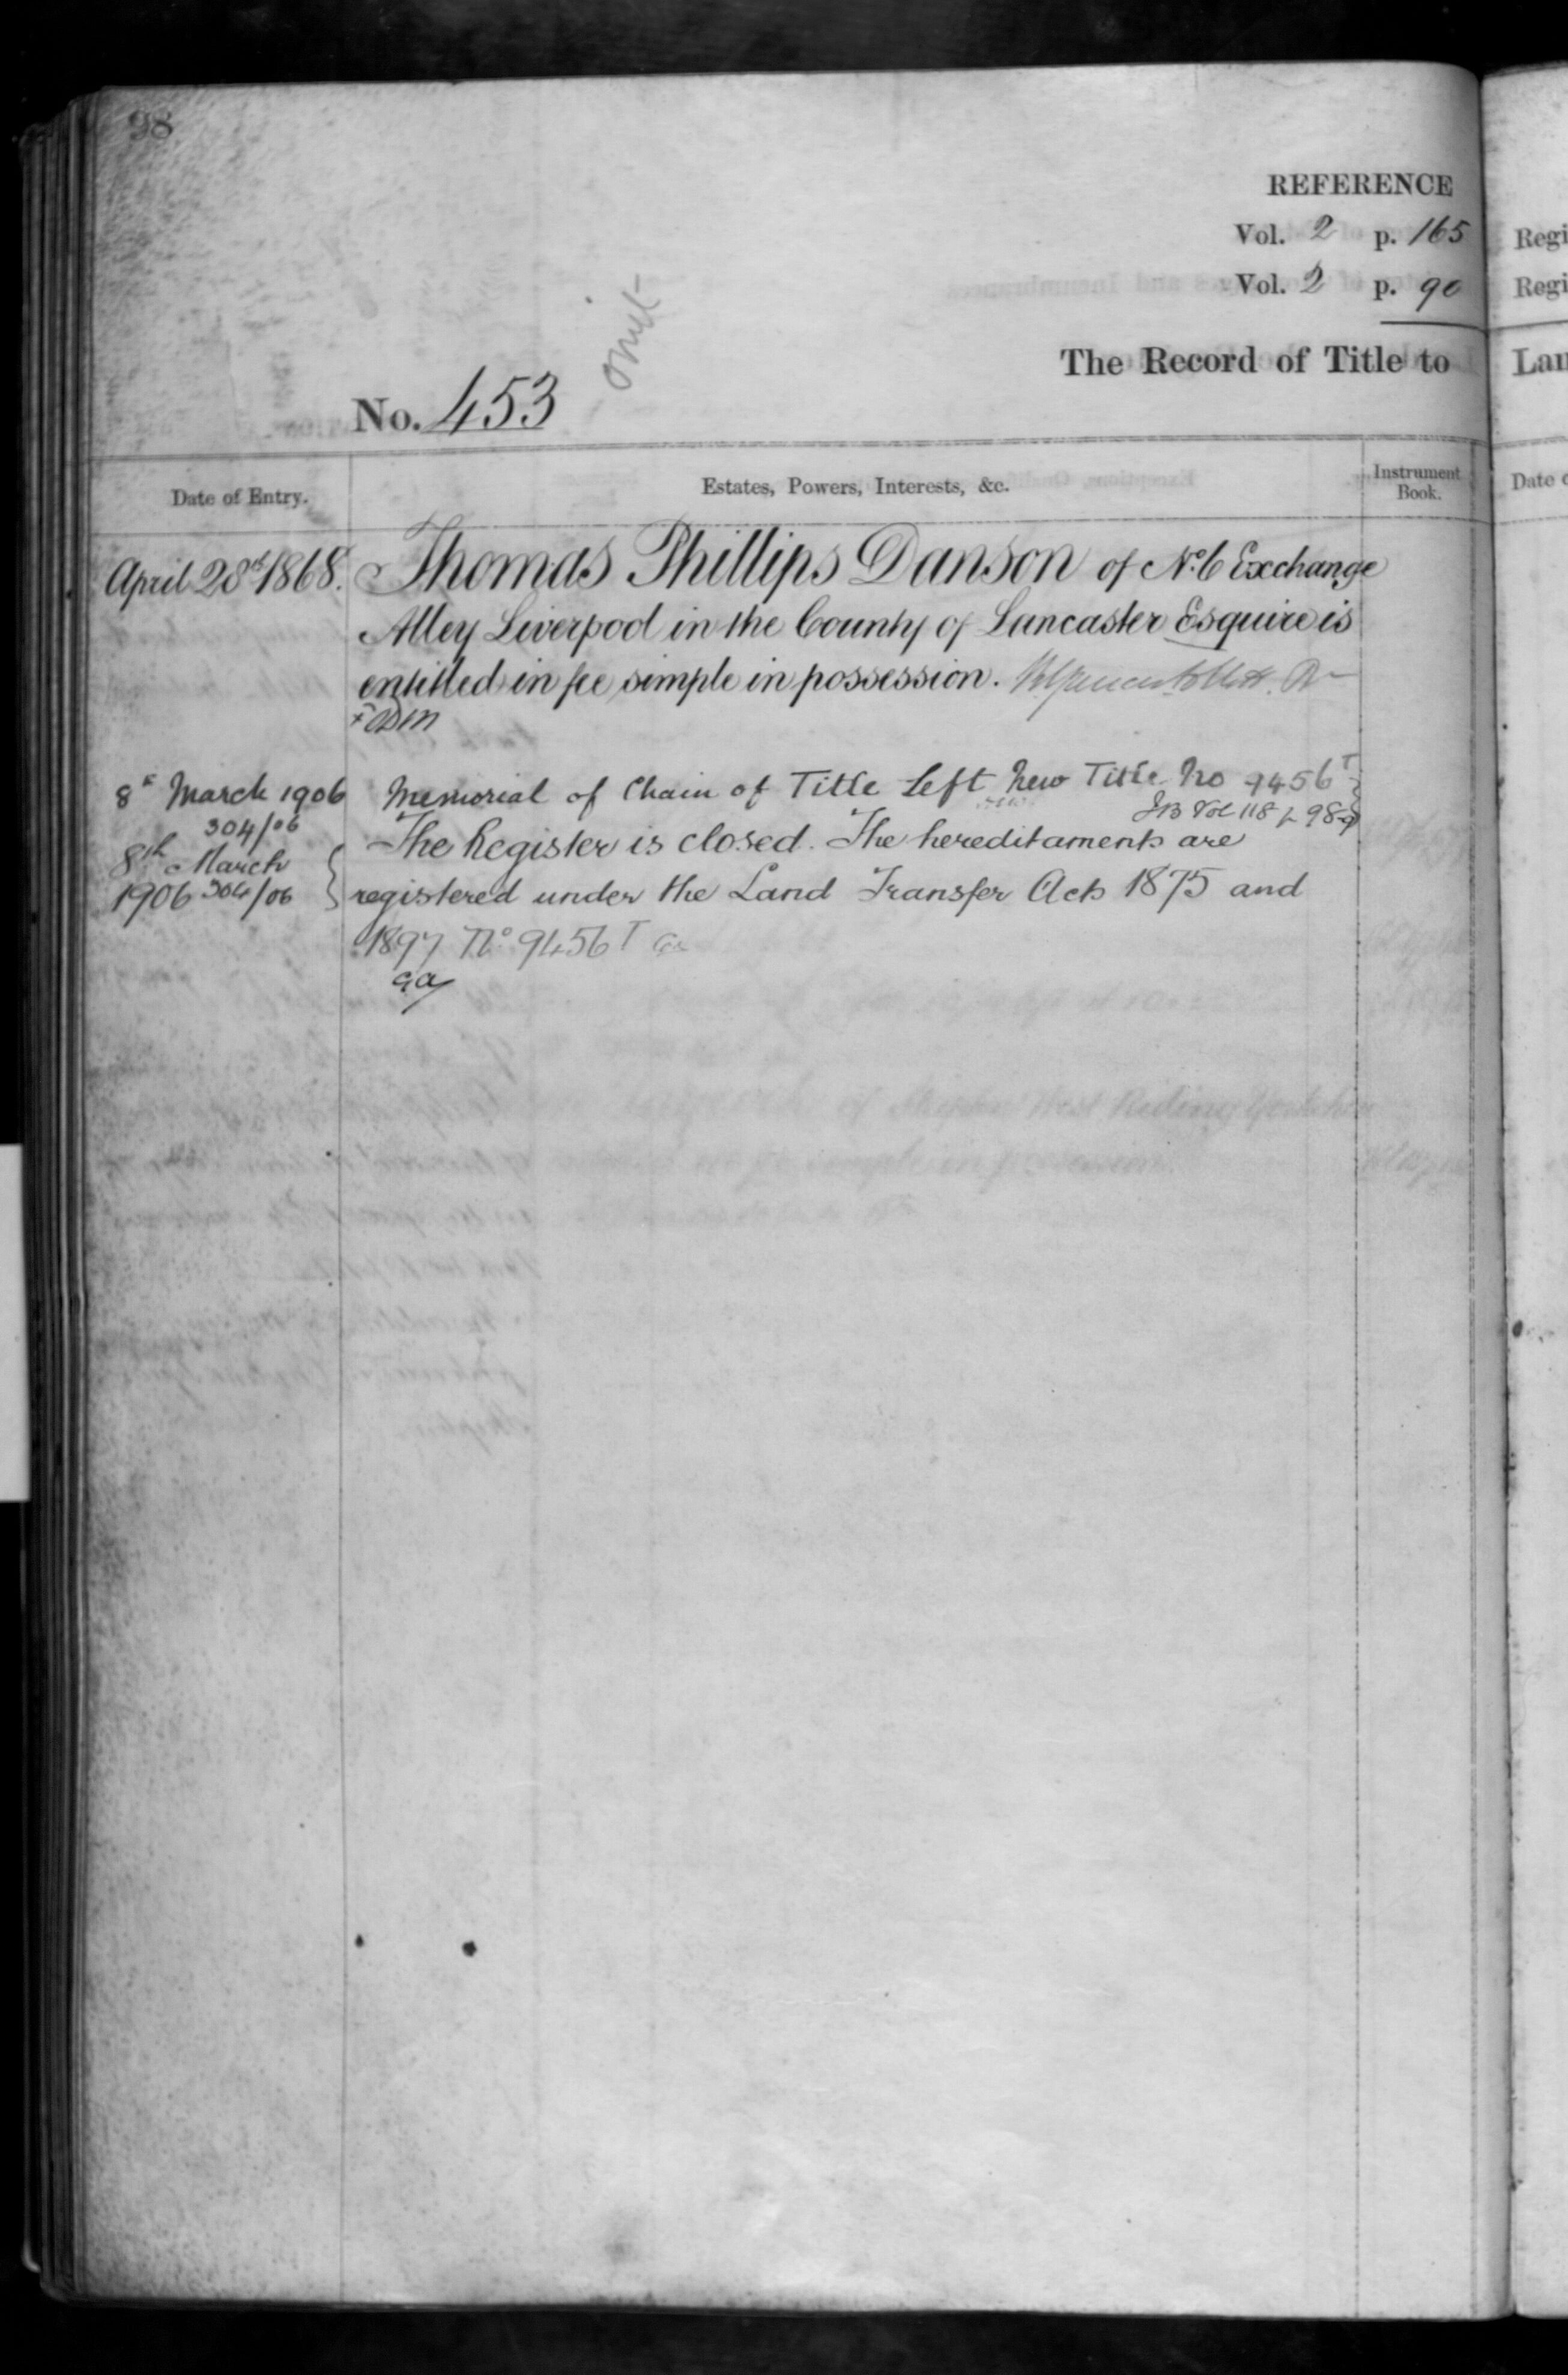 98
REFERENCE
Vol. 2 p. 165
Vol. 2 p. 90
The Record of Title to
omit
No. 453
Date of Entry.
Estates, Powers, Interests, &c.
Instrument Book.
April 28th 1868. Thomas Phillips Danson of No. 6 Exchange
Alley Liverpool in the County of Lancaster Esquire is
entitled in fee simple in possession.
8th March 1906 Memorial of Chain of Title Left New Title No 9456T
304/06 IB Vol 118 p 98
8th March The Register is closed. The hereditaments are
1906 304/06 registered under the Land Transfer Acts 1875 and
1897 No 9456T
Regi
Regi
Lan
Date o